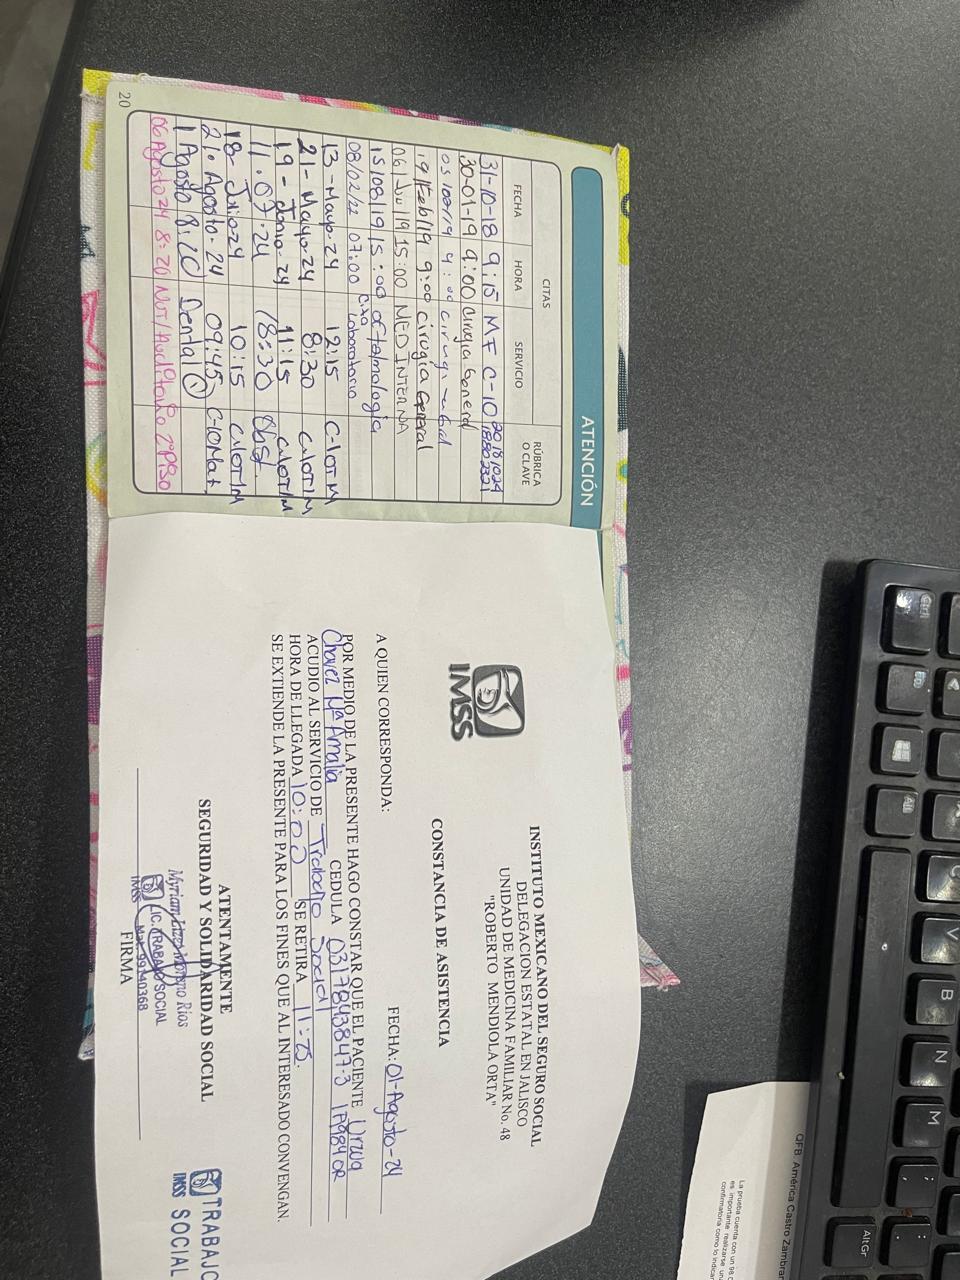 20
ATENCIÓN
CITAS
FECHA HORA SERVICIO RÚBRICA O CLAVE
31-10-18 9:15 MF C-10 20181024 18802321
30-01-19 9:00 Cirugia General
9:00 cirugia General
06/Jun/19 15:00 MED INTERNA
15/08/19 15:00 oftalmologia
08/02/22 07:00 Cita Laboratorio
13-Mayo-24 12:15 C-10TM
21-Mayo-24 8:30 C-10T/M
19-Junio-24 11:15 C-10T/M
11.07-24 18:30
18-Julio-24 10:15 C-10T/M
21-Agosto-24 09:45 C-10Mat.
1 Agosto 8:20 Dental
06 Agosto 24 8:20 Nut/Auditorio 2º piso
IMSS
INSTITUTO MEXICANO DEL SEGURO SOCIAL
DELEGACION ESTATAL EN JALISCO
UNIDAD DE MEDICINA FAMILIAR No. 48
"ROBERTO MENDIOLA ORTA"
CONSTANCIA DE ASISTENCIA
FECHA: 01-Agosto-24
A QUIEN CORRESPONDA:
POR MEDIO DE LA PRESENTE HAGO CONSTAR QUE EL PACIENTE Urzua
Chavez Mª Amalia CEDULA 0317843847-3 1F984OR
ACUDIO AL SERVICIO DE Trabajo Social
HORA DE LLEGADA 10:00 SE RETIRA 11:25.
SE EXTIENDE LA PRESENTE PARA LOS FINES QUE AL INTERESADO CONVENGAN.
ATENTAMENTE
SEGURIDAD Y SOLIDARIDAD SOCIAL
Myriam Moreno Rios
LIC. TRABAJO SOCIAL
IMSS Mat. 99140368
FIRMA
TRABAJO
IMSS SOCIAL
Ctrl
Fn
Alt
C
V
B
N
M
;
,
:
.
AltGr
QFB América Castro Zambra
La prueba cuenta con un 98.
es importante realizarse un
confirmatoria como lo indica